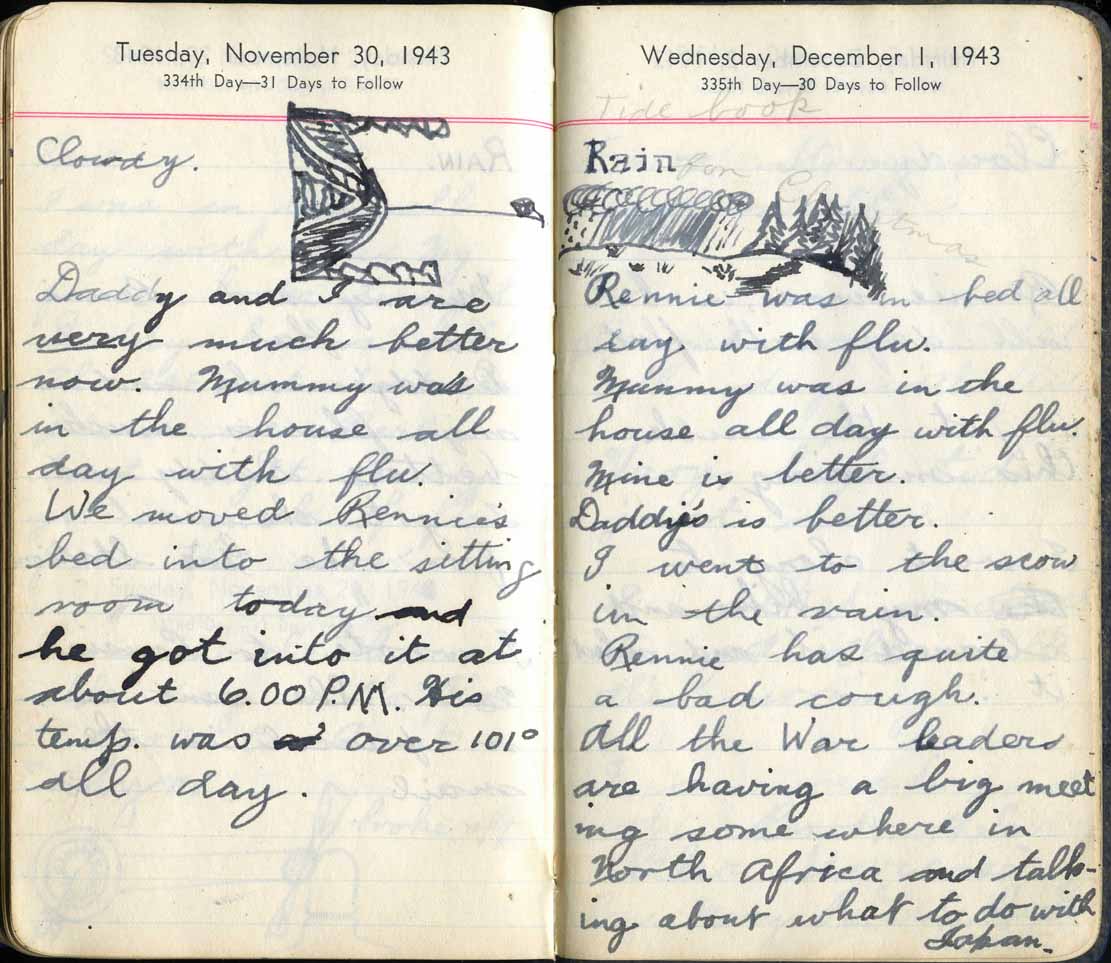 Tuesday, November 30, 1943
334th Day—31 Days to Follow
Clowdy.
Daddy and I are
very much better
now. Mummy was
in the house all
day with flu.
We moved Rennie's
bed into the sitting
room today and
he got into it at
about 6.00 P.M. His
temp. was over 101°
all day.
Wednesday, December 1, 1943
335th Day—30 Days to Follow
Tide book
Rain for Christmas
Rennie was in bed all
day with flu.
Mummy was in the
house all day with flu.
Mine is better.
Daddy's is better.
I went to the scow
in the rain.
Rennie has quite
a bad cough.
All the War leaders
are having a big meet
ing some where in
North Africa and talk-
ing about what to do with
Japan.